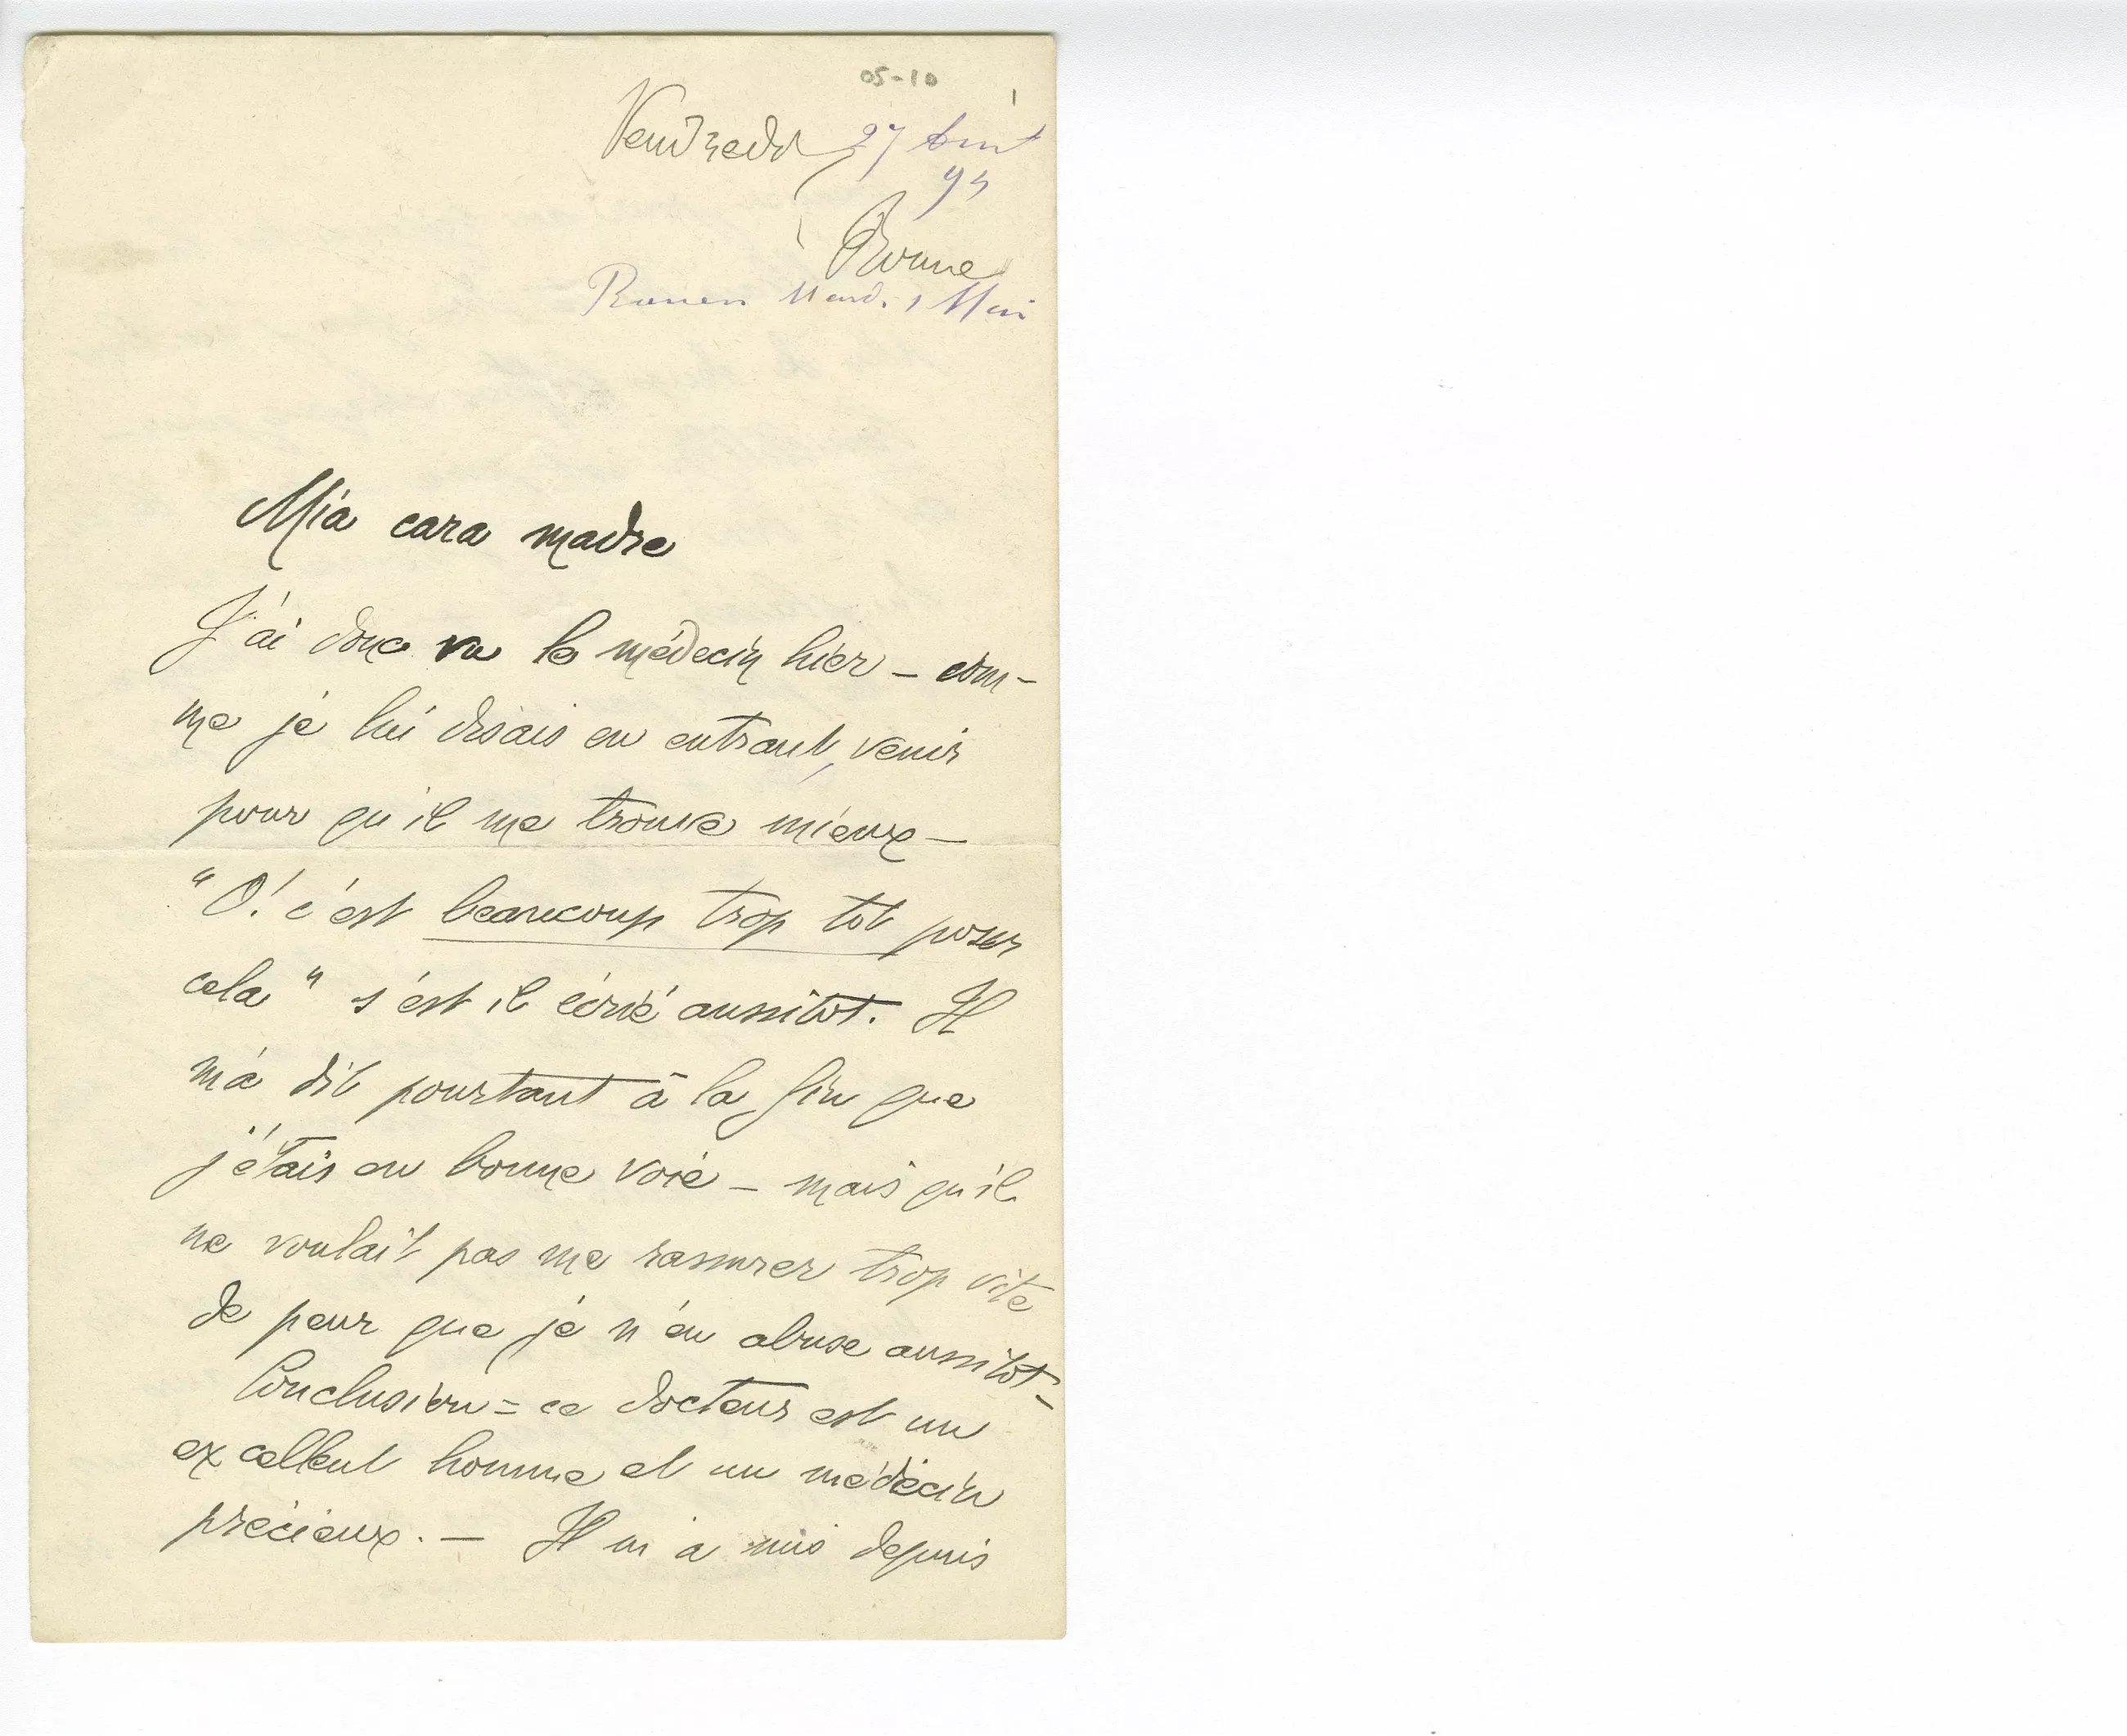 05-10
1
Vendredi 27 Avril
94
Rome
Rouen Mard. 1 Mai
Mia cara madre
J'ai donc vu le médecin hier – com-
me je lui disais en entrant, venir
pour qu'il me trouve mieux –
"O! c'est beaucoup trop tot pour
cela" s'est il écrié aussitôt. Il
m'a dit pourtant à la fin que
j'étais en bonne voie – mais qu'il
ne voulait pas me rassurer trop vite
de peur que je n'en abuse aussitot –
Conclusion = ce docteur est un
excellent homme et un médecin
précieux. – Il m'a mis depuis